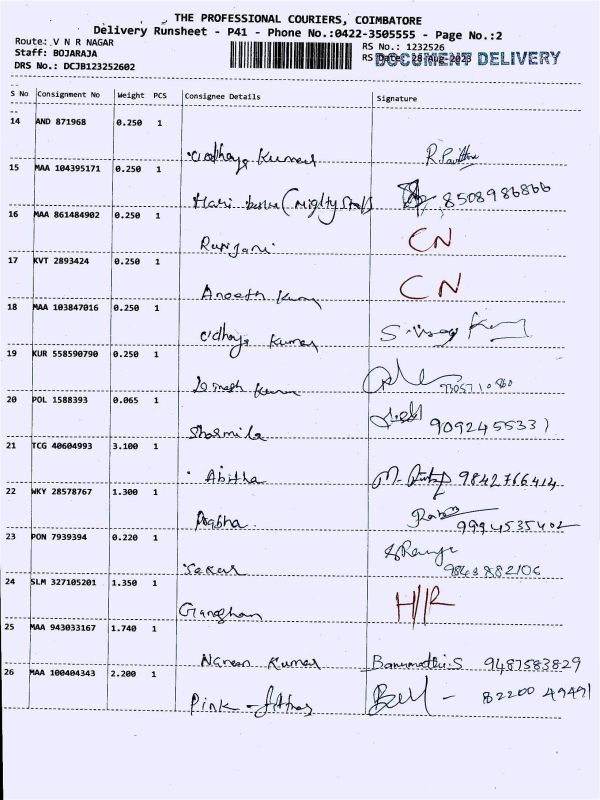 THE PROFESSIONAL COURIERS, COIMBATORE
Delivery Runsheet - P41 - Phone No.:0422-3505555 - Page No.:2
Route: V N R NAGAR
Staff: BOJARAJA
DRS No.: DCJB123252602
RS No.: 1232526
RS Date: 28-Aug-2023
DOCUMENT DELIVERY
S No Consignment No Weight PCS Consignee Details Signature
14 AND 871968 0.250 1
Udhaya Kumar
15 MAA 104395171 0.250 1
Hari 8508986866
16 MAA 861484902 0.250 1
Ranjani CN
17 KVT 2893424 0.250 1
CN
18 MAA 103847016 0.250 1
Udhaya Kumar
19 KUR 558590790 0.250 1
20 POL 1588393 0.065 1
Sharmila 9092455331
21 TCG 40604993 3.100 1
Abitha 9842766414
22 WKY 28578767 1.300 1
Prabha 9994535402
23 PON 7939394 0.220 1
Sekar 9843882106
24 SLM 327105201 1.350 1
H/R
25 MAA 943033167 1.740 1
Naren Kumar Banumathi.S 9487583829
26 MAA 100404343 2.200 1
Pink - 82200 49491